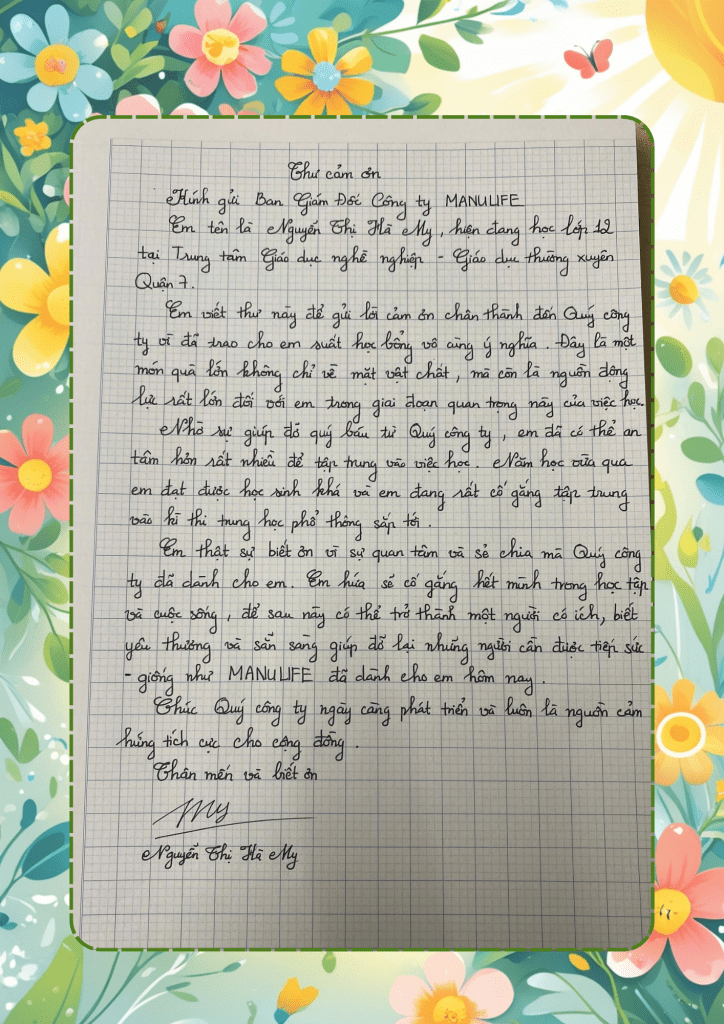 Thư cảm ơn
Kính gửi Ban Giám Đốc Công ty MANULIFE
Em tên là Nguyễn Thị Hà My, hiện đang học lớp 12
tại Trung tâm Giáo dục nghề nghiệp - Giáo dục thường xuyên
Quận 7.
Em viết thư này để gửi lời cảm ơn chân thành đến Quý công
ty vì đã trao cho em suất học bổng vô cùng ý nghĩa. Đây là một
món quà lớn không chỉ về mặt vật chất, mà còn là nguồn động
lực rất lớn đối với em trong giai đoạn quan trọng này của việc học.
Nhờ sự giúp đỡ quý báu từ Quý công ty, em đã có thể an
tâm hơn rất nhiều để tập trung vào việc học. Năm học vừa qua
em đạt được học sinh khá và em đang rất cố gắng tập trung
vào kì thi trung học phổ thông sắp tới.
Em thật sự biết ơn vì sự quan tâm và sẻ chia mà Quý công
ty đã dành cho em. Em hứa sẽ cố gắng hết mình trong học tập
và cuộc sống, để sau này có thể trở thành một người có ích, biết
yêu thương và sẵn sàng giúp đỡ lại những người cần được tiếp sức
- giống như MANULIFE đã dành cho em hôm nay.
Chúc Quý công ty ngày càng phát triển và luôn là nguồn cảm
hứng tích cực cho cộng đồng.
Thân mến và biết ơn
My
Nguyễn Thị Hà My